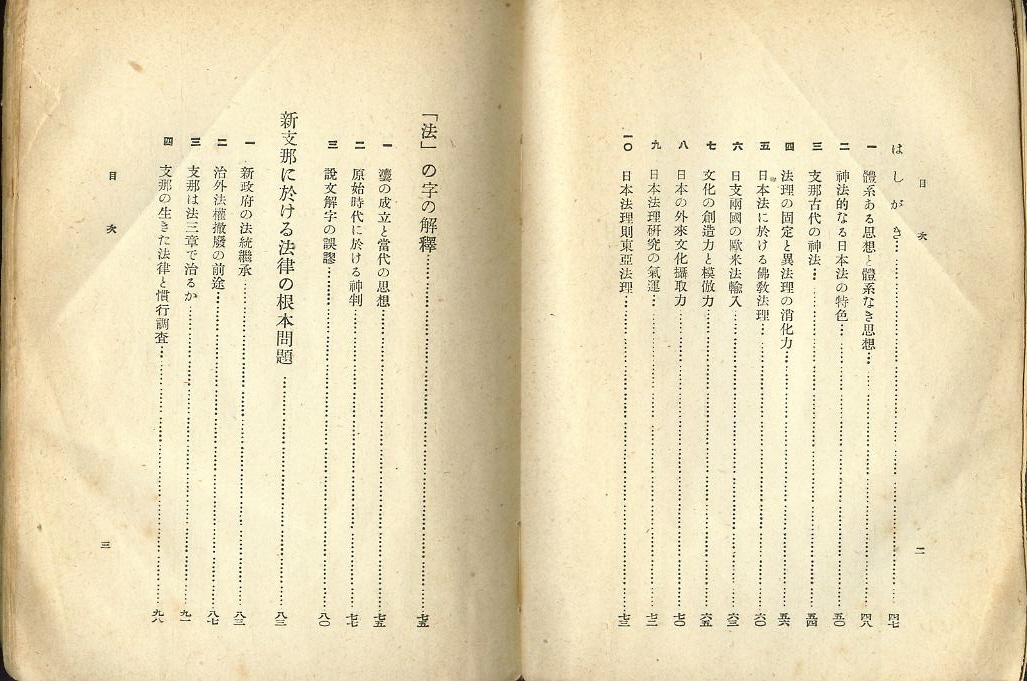 目次
二
はしがき……四七
一 體系ある思想と體系なき思想……四八
二 神法的なる日本法の特色……五〇
三 支那古代の神法……五四
四 法理の固定と異法理の消化力……五六
五 日本法に於ける佛敎法理……六〇
六 日支兩國の歐米法輸入……六三
七 文化の創造力と模倣力……六五
八 日本の外來文化攝取力……七〇
九 日本法理硏究の氣運……七二
一〇 日本法理則東亞法理……七三
「法」の字の解釋……七五
一 灋の成立と當代の思想……七五
二 原始時代に於ける神判……七七
三 說文解字の誤謬……八〇
新支那に於ける法律の根本問題……八三
一 新政府の法統繼承……八三
二 治外法權撤廢の前途……八七
三 支那は法三章で治るか……九一
四 支那の生きた法律と慣行調査……九六
目次
三